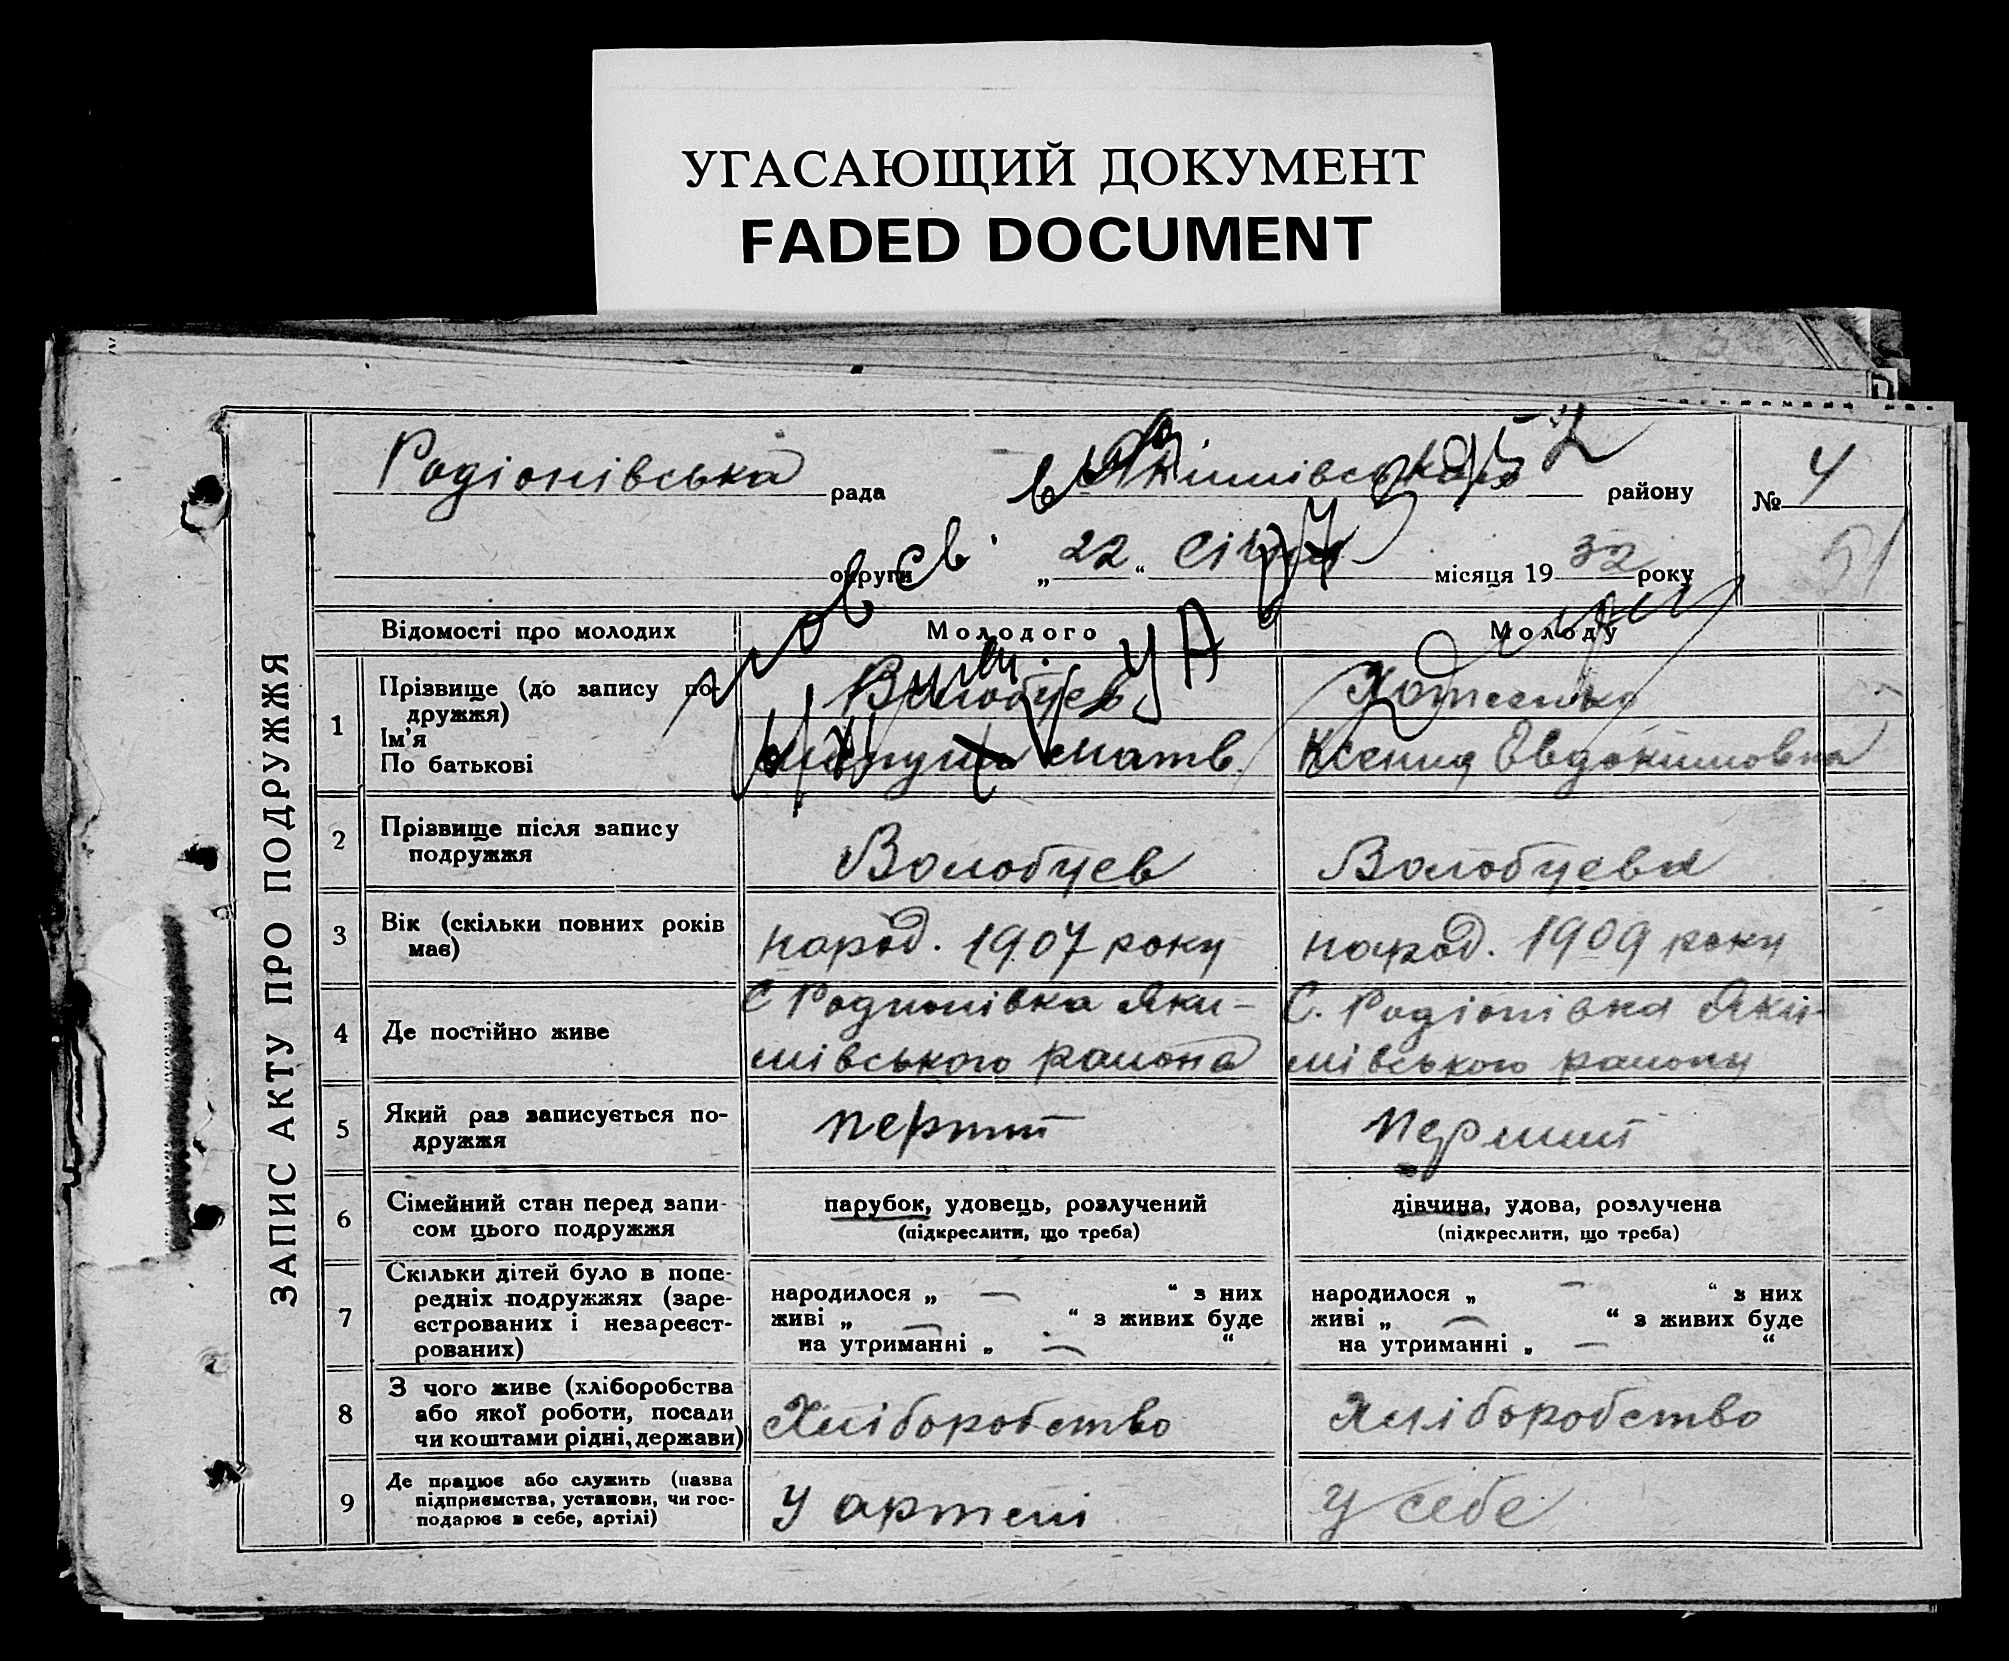 УГАСАЮЩИЙ ДОКУМЕНТ
FADED DOCUMENT
ЗАПИС АКТУ ПРО ПОДРУЖЖЯ
Родіонівська рада Якимівського району № 4
округи „ 22 “ Січня місяця 19 32 року 51
Відомості про молодих Молодого Молоду
1 Прізвище (до запису по-
дружжя)
Ім'я
По батькові
Волобуев
Матв. Ксения Овдокимовна
2 Прізвище після запису
подружжя
Волобуев Волобуева
3 Вік (скільки повних років
має)
народ. 1907 року народ. 1909 року
4 Де постійно живе
С Родионівка Яки- С. Родіонівка Яки-
мівського района мівського району
5 Який раз записується по-
дружжя
перший Перший
6 Сімейний стан перед запи-
сом цього подружжя
парубок, удовець, розлучений дівчина, удова, розлучена
(підкреслити, що треба) (підкреслити, що треба)
7 Скільки дітей було в попе-
редніх подружжях (заре-
єстрованих і незареєст-
рованих)
народилося „ — “ з них народилося „ — “ з них
живі „ — “ з живих буде живі „ — “ з живих буде
на утриманні „ — “ на утриманні „ — “
8 З чого живе (хліборобства
або якої роботи, посади
чи коштами рідні, держави)
Хліборобство Хліборобство
9 Де працює або служить (назва
підприємства, установи, чи гос-
подарює в себе, артілі)
У артелі У себе